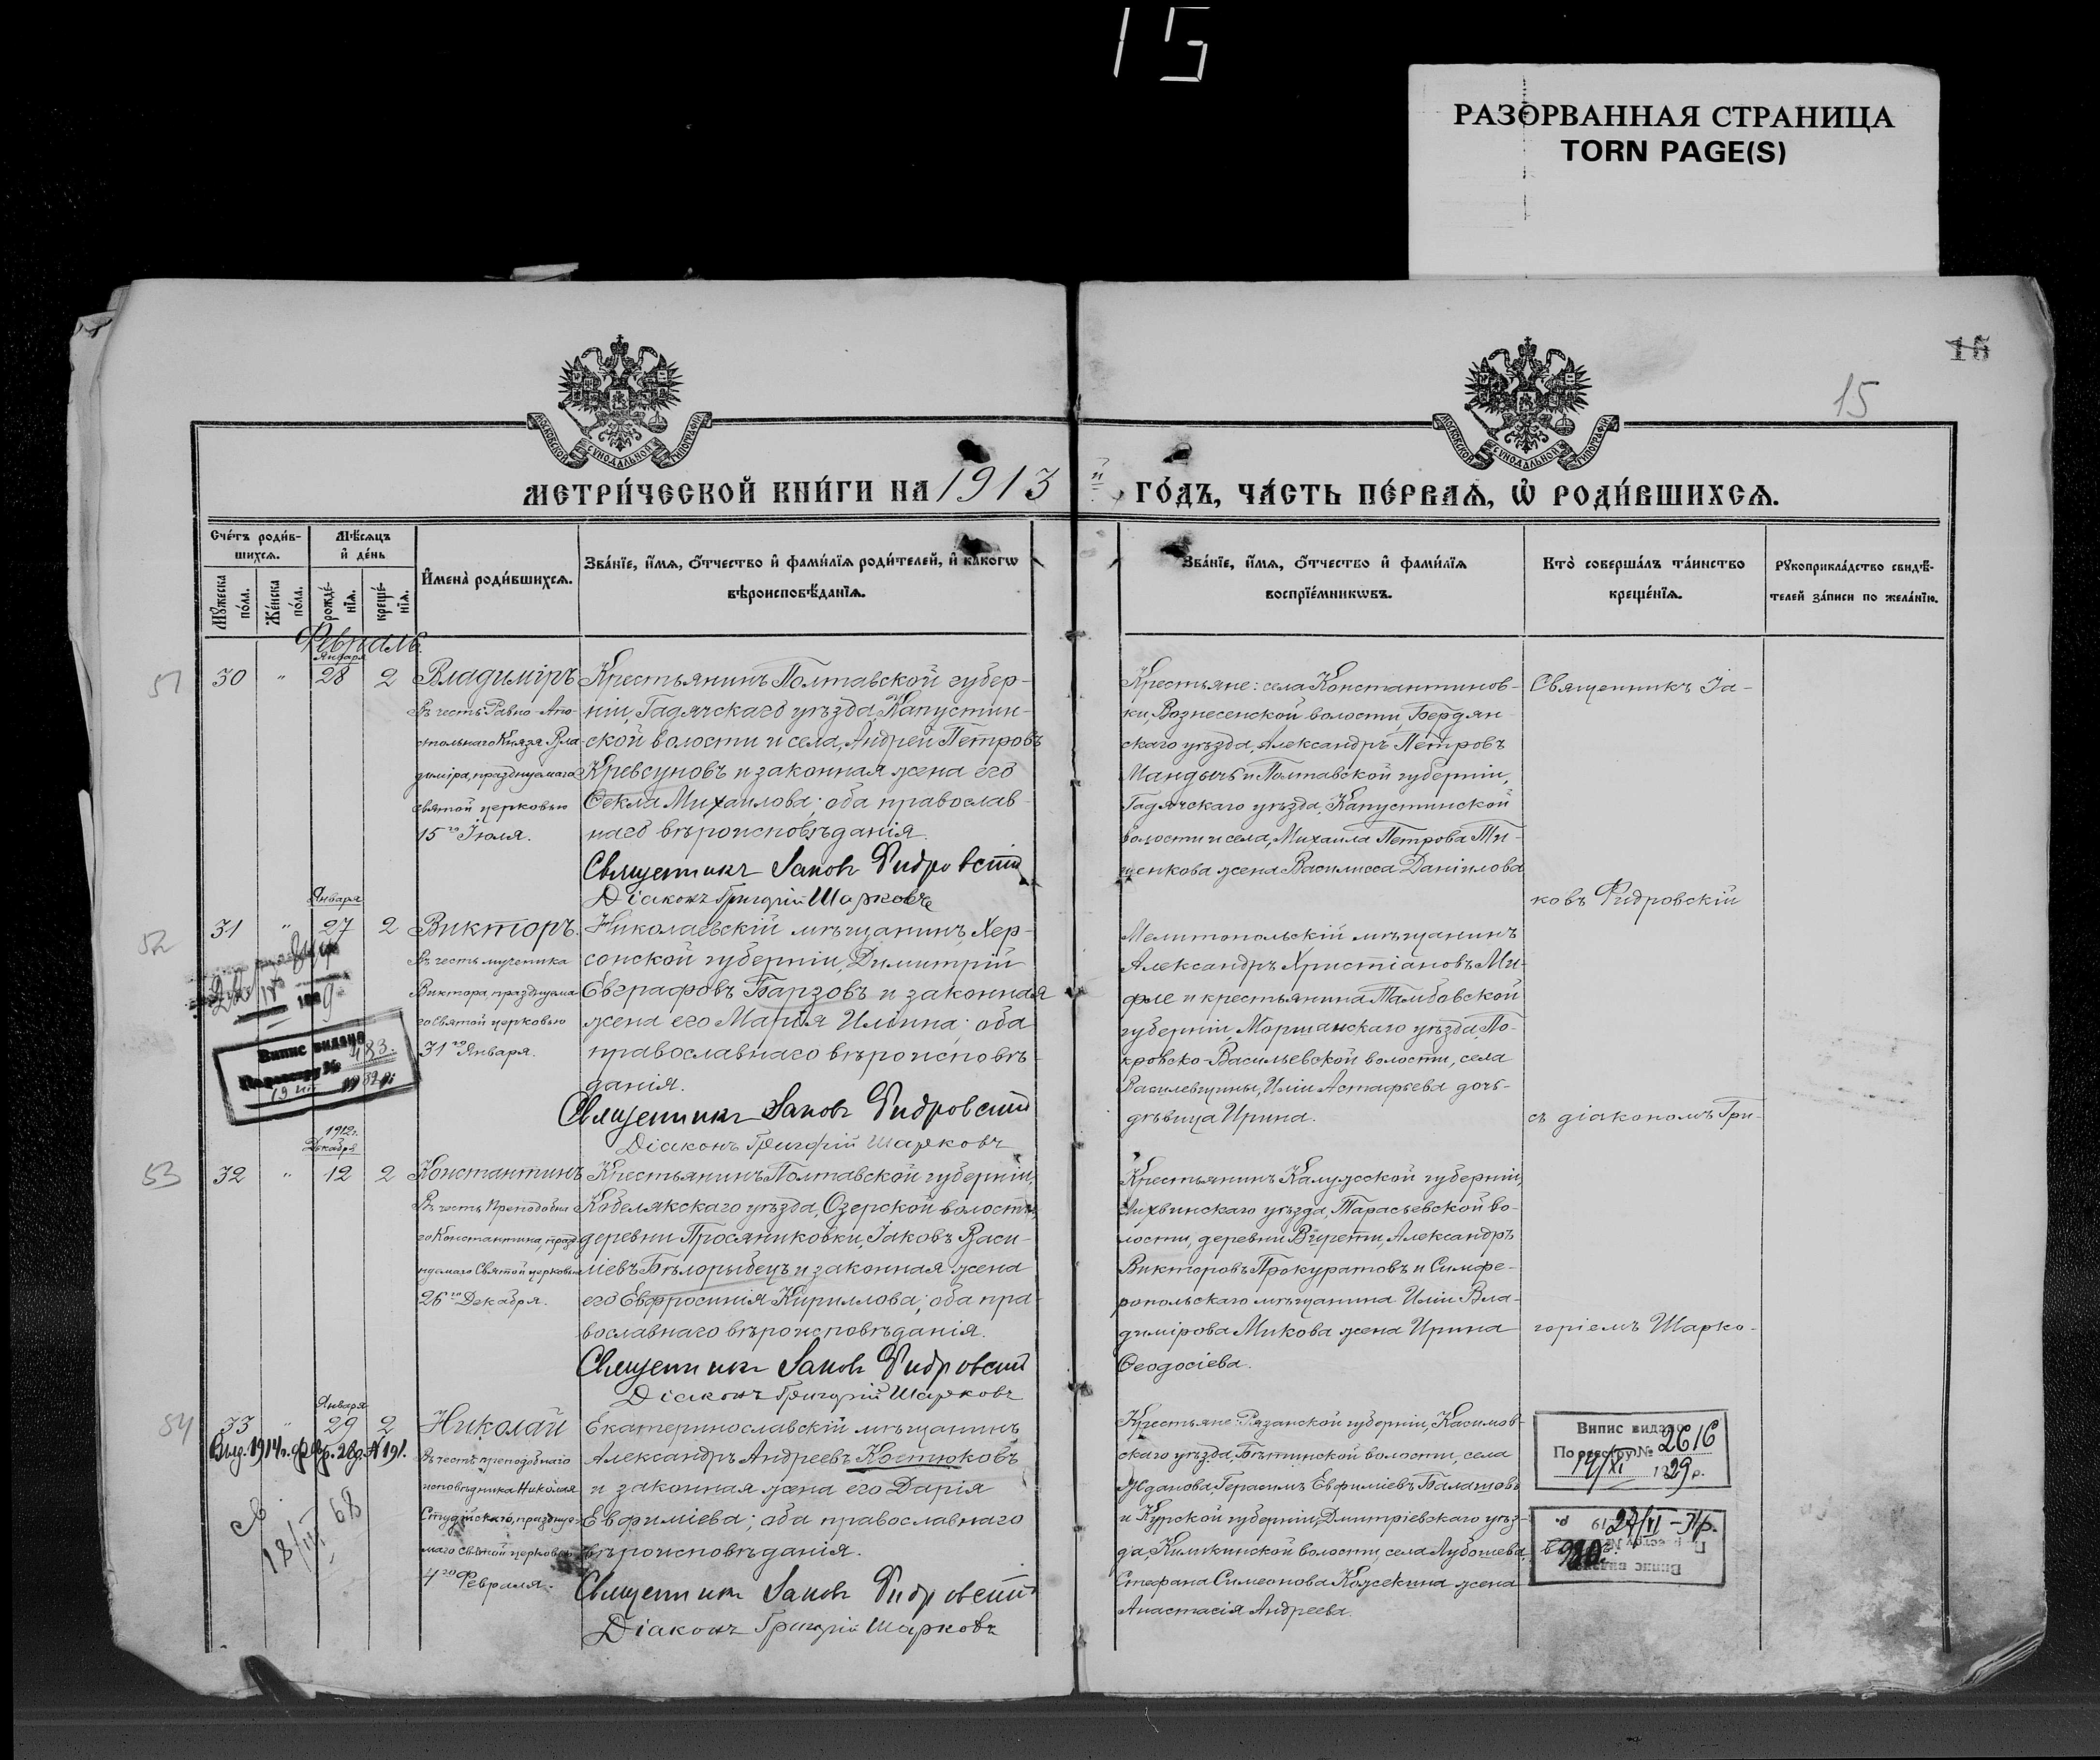 15
РАЗОРВАННАЯ СТРАНИЦА
TORN PAGE(S)
15
15
МОСКОВСКОЙ СУНОДАЛЬНОЙ ТИПОГРАФІИ
МОСКОВСКОЙ СУНОДАЛЬНОЙ ТИПОГРАФІИ
МЕТРИ́ЧЕСКОЙ КНИ́ГИ НА 1913 й ГО́ДЪ, ЧА́СТЬ ПЕ́РВАѦ, Ѡ҆ РОДИ́ВШИХСѦ.
Сче́тъ роди́в-
шихсѧ.
Мꙋ́жеска по́ла.
Же́нска по́ла.
Мѣ́сѧцъ
и҆ де́нь
рожде́-нїѧ.
креще́-нїѧ.
И҆мена̀ роди́вшихсѧ.
Зва́нїе, и҆́мѧ, ѻ҆́тчество и҆ фами́лїѧ роди́телей, и҆ како́гѡ
вѣроисповѣ́данїѧ.
Зва́нїе, и҆́мѧ, ѻ҆́тчество и҆ фами́лїѧ
воспрїе́мникѡвъ.
Кто̀ соверша́лъ та́инство
креще́нїѧ.
Рꙋкоприкла́дство свидѣ́-
телей за́писи по жела́нїю.
Февраль.
51
30 " Января 28 2
Владиміръ
Въ честь Равно-Апо-
стольнаго Князя Вла-
диміра, празднуемаго
святой церковью
15го Іюля.
Крестьянинъ Полтавской губер-
ніи, Гадячскаго уѣзда, Капустин-
ской волости и села, Андрей Петровъ
Кревсуновъ и законная жена его
Ѳекла Михаилова; оба православ-
наго вѣроисповѣданія.
Священникъ Іаковъ Фидровскій
Діаконъ Григорій Шарковъ
Крестьяне: села Константинов-
ки, Вознесенской волости, Бердян-
скаго уѣзда, Александръ Петровъ
Мандычъ и Полтавской губерніи,
Гадячскаго уѣзда, Капустинской
волости и села, Михаила Петрова Ти-
щенкова жена Василисса Даніилова
Священникъ Іа-
ковъ Фидровскій
52
31 " Января 27 2
Викторъ.
Въ честь мученика
Виктора, празднуема-
го святой церковью
31го Января.
Випис видано
По реєстру № 483.
Николаевскій мѣщанинъ, Хер-
сонской губерніи, Димитрій
Евграфовъ Барзовъ и законная
жена его Марія Ильина; оба
православнаго вѣроисповѣ-
данія.
Священникъ Іаковъ Фидровскій
Діаконъ Григорій Шарковъ
Мелитопольскій мѣщанинъ
Александръ Христіановъ Ми-
фле и крестьянина Тамбовской
губерніи, Моршанскаго уѣзда, По-
кровско-Васильевской волости, села
Василевщины, Иліи Астафьева дочь-
дѣвица Ирина.
съ діакономъ Гри-
53
32 " 1912г. Декабря 12 2
Константинъ
Въ честь Преподобна-
го Константина, празд-
нуемаго Святой церковью
26го Декабря.
Крестьянинъ Полтавской губерніи,
Кобелякскаго уѣзда, Озерской волости,
деревни Просяниковки, Іаковъ Васи-
ліевъ Бѣлорыбецъ и законная жена
его Евфросинія Кириллова; оба пра-
вославнаго вѣроисповѣданія.
Священникъ Іаковъ Фидровскій
Діаконъ Григорій Шарковъ
Крестьянинъ Калужской губерніи,
Лихвинскаго уѣзда, Тарасьевской во-
лости, деревни Александръ
Викторовъ Прокуратовъ и Симфе-
ропольскаго мѣщанина Иліи Вла-
димірова Микова жена Ирина
Ѳеодосіева.
горіемъ Шарко-
54
33 " Января 29 2
Выд. 1914г. февр. 28д. № 191.
18/III 68
Николай
Въ честь преподобнаго
исповѣдника Николая
Студійскаго, празднуе-
маго святой церковью
4го Февраля.
Екатеринославскій мѣщанинъ
Александръ Андреевъ Костюковъ
и законная жена его Дарія
Евфиміева; оба православнаго
вѣроисповѣданія.
Священникъ Іаковъ Фидровскій
Діаконъ Григорій Шарковъ
Крестьяне: Рязанской губерніи, Касимов-
скаго уѣзда, Бѣтинской волости, села
Жданова, Герасимъ Евфиміевъ Балашовъ
и Курской губерніи, Дмитріевскаго уѣз-
да, Киликинской волости, села Лубошева,
Стефана Симеонова Кожекина жена
Анастасія Андреева.
вымъ.
Випис видано
По реєстру № 2616
14/XI 1929 р.
27/VI – 31р.
980.
Випис видано